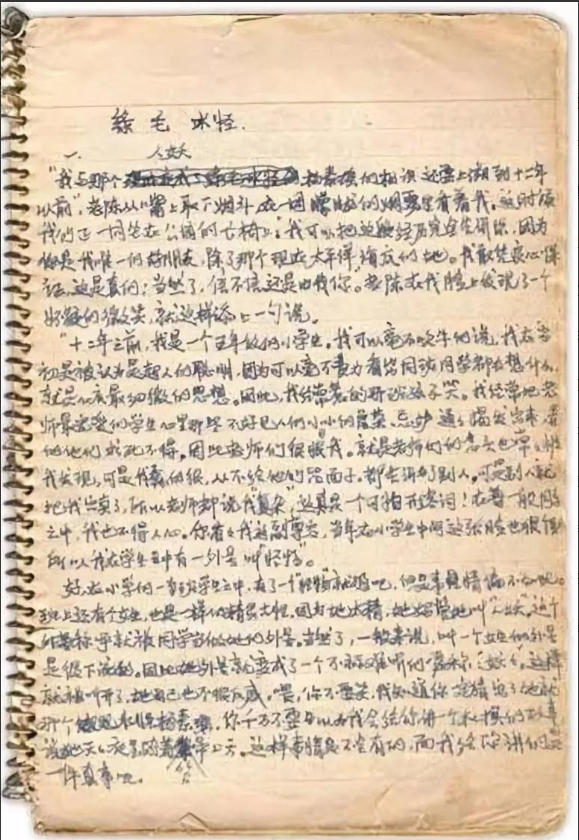 绿毛水怪
一、人妖
“我与那个杨素瑶的相识还要上溯到十二年
以前”,老陈从嘴上取下烟斗,在一团朦胧的烟雾里看着我。这时候
我们正一同坐在公园的长椅上。“我可以把这段经历完全告诉你,因为
你是我唯一的朋友,除了那个现在太平洋海底的她。我敢凭良心保
证,这是真的;当然了,信不信还是由你。”老陈在我脸上发现了一个
怀疑的微笑,就这样添上一句说。
“十二年之前,我是一个五年级的小学生。我可以毫不吹牛的说,我在当
初是被认为是超人的聪明,因为可以毫不费力看出同班同学都在想什么,
就是心底最细微的思想。因此,我经常惹的那班孩子笑。我经常把老
师最宠爱的学生心里那些不好见人的小小的虚荣、忌妒通通揭发出来,弄
的他们求死不得。因此老师们很恨我。就是老师们的念头也常
我发现,可是我蠢的很,从不给他们留面子,都告诉了别人。可是别人就
把我出卖了,所以老师都说我“复杂”,这真是一个可怕的形容词!在一般同学
之中,我也不得人心。你看看我这副尊容,当年在小学生中间这张脸也很
所以我在学生中有一外号叫“怪物”。
好,在小学的一班学生之中,有了一个“怪物”就够了吧,但是事情偏不如此。
班上还有个女生,也是一样的精灵古怪。因为她太精,她妈管她叫“人妖”。这个
称呼就被同学当做她的外号。当然了,一般来说,叫一个女生的外号
是很下流的。因此她的外号就变成了一个不算难听的昵称“妖妖”。这样
就被叫开了,她自己也不很反感。喂,你不要笑,我知道你现在猜出了她就是
那个水怪杨素瑶,你千万不要以为我会给你讲一个杜撰的故事,
说她天天夜里骑着笤帚上天。这样事情是不会有的,而我给你讲的是
一件真事呢。